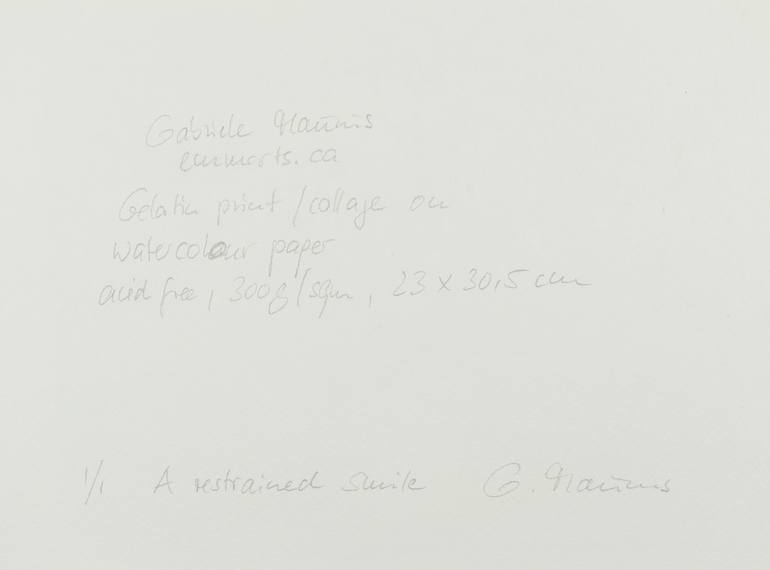 Gabriele Maurus
emmarts.ca
Gelatin print / collage on
watercolour paper
acid free, 300g/sqm, 23 x 30,5 cm
1/1 A restrained smile G. Maurus